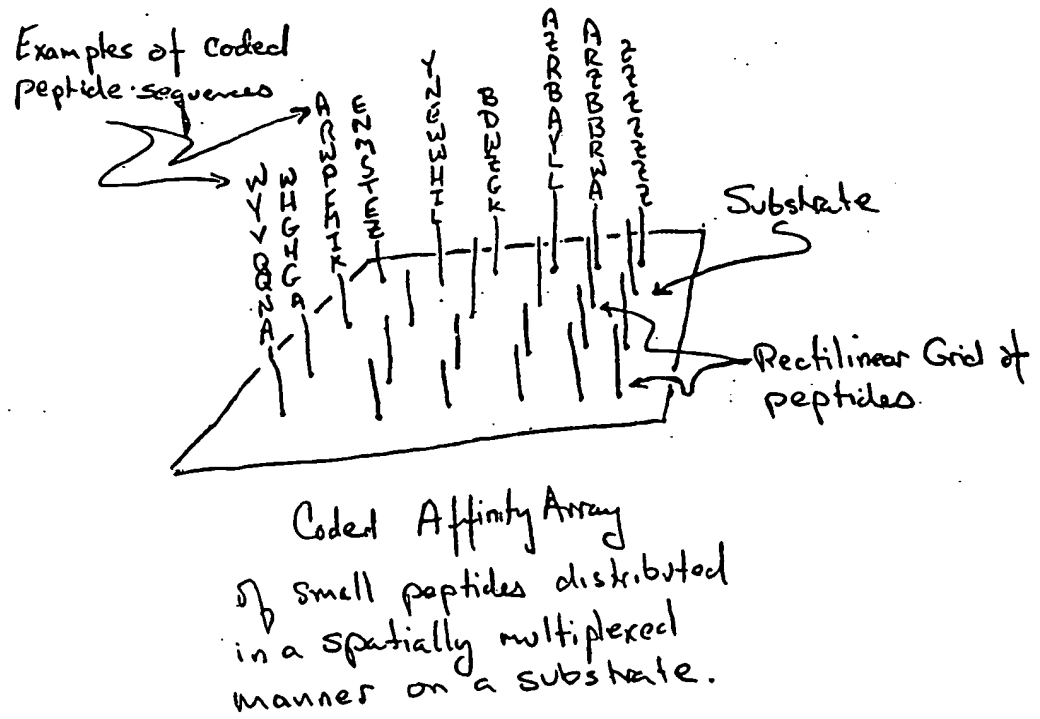 Examples of Coded
peptide sequences
WYVQQNA
WHGHGA
AZRBAYLL
ARZBBRWA
Substrate
Rectilinear Grid of
peptides
Coded Affinity Array
of small peptides distributed
in a spatially multiplexed
manner on a substrate.